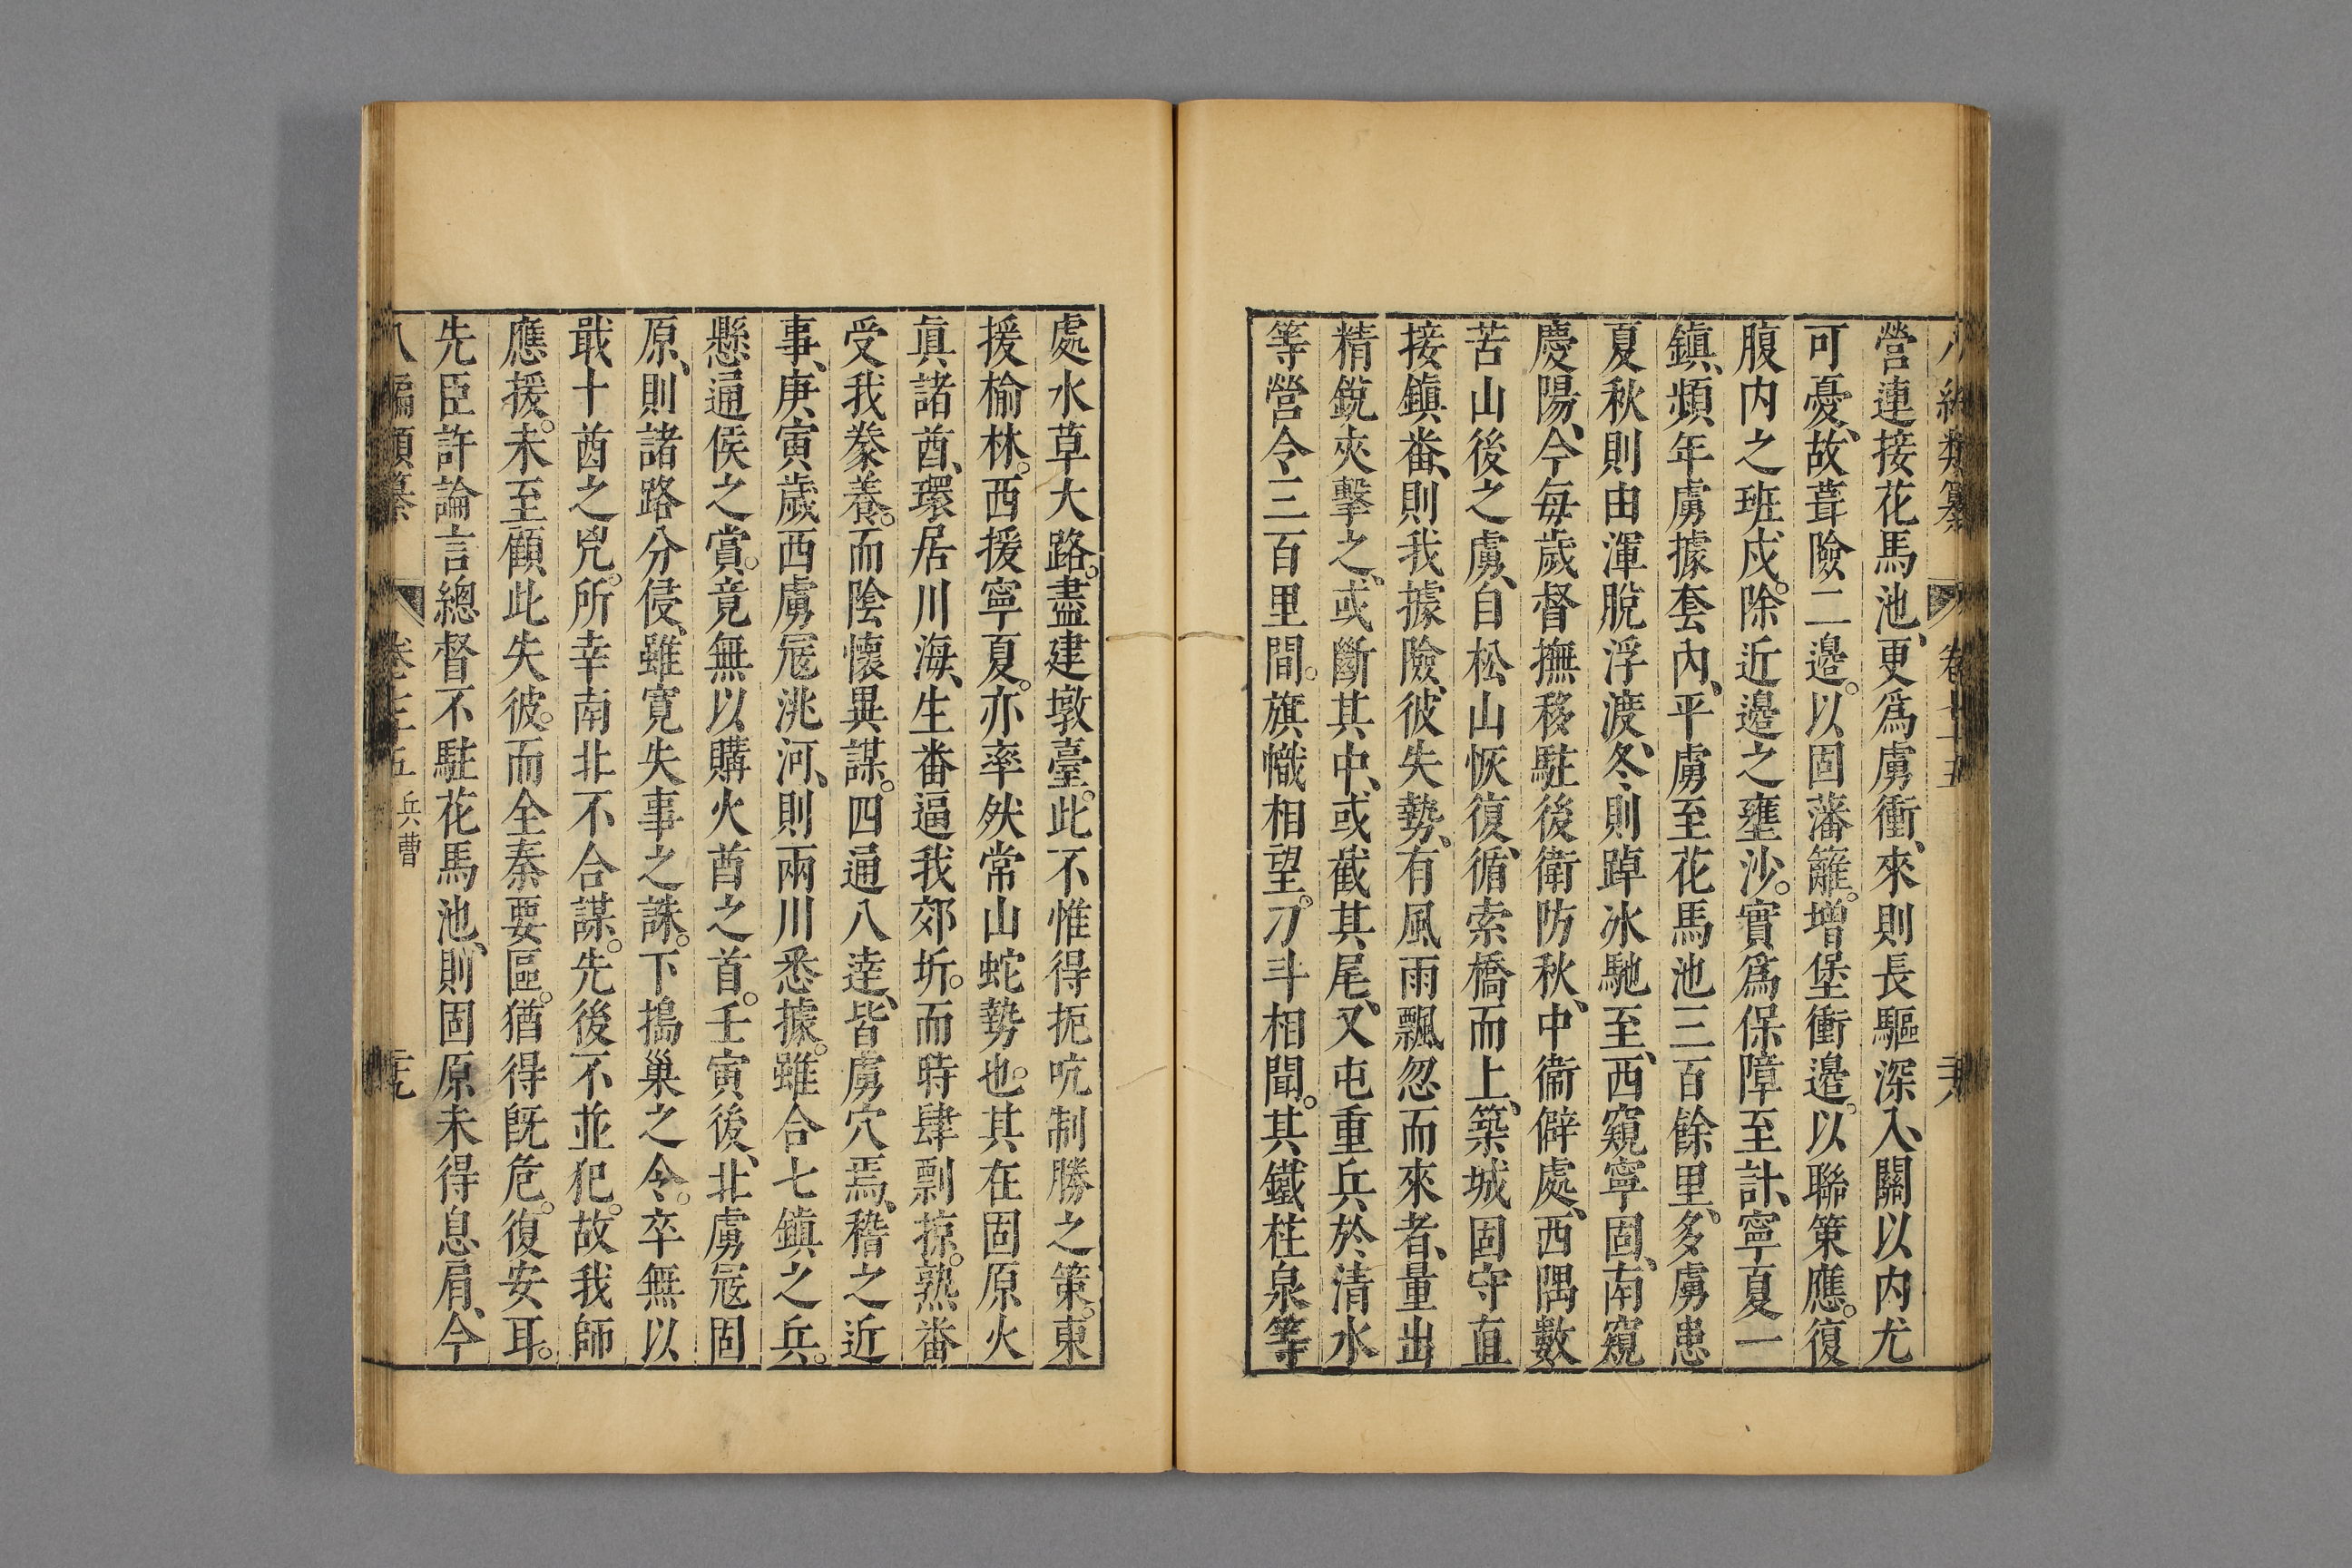 營連接花馬池、更爲虜衝、來則長驅深入、關以内尤
可憂、故葺險二邊。以固藩籬。增堡衝邊。以聯策應。復
腹内之班戍。除近邊之壅沙。實爲保障至計、寧夏一
鎮、頻年虜據套内、平虜至花馬池三百餘里、多虜患
夏秋則由渾脫浮渡、冬則踔冰馳至、西窺寧固、南窺
慶陽、今每歲督撫移駐後衛防秋、中衛僻處、西隅數
苦山後之虜、自松山恢復、循索橋而上、築城固守直
接鎮番、則我據險、彼失勢、有風雨飄忽而來者、量出
精銳夾擊之、或斷其中、或截其尾、又屯重兵於清水
等營、令三百里間。旗幟相望。刁斗相聞。其鐵柱泉等
處水草大路。盡建墩臺。此不惟得扼吭制勝之策。東
援榆林。西援寧夏。亦率然常山蛇勢也。其在固原火
眞諸酋、環居川海、生番逼我郊圻。而時肆剽掠。熟番
受我豢養。而陰懷異謀。四通八達、皆虜穴焉、稽之近
事、庚寅歲西虜宼洮河、則兩川悉據。雖合七鎮之兵。
懸通侯之賞。竟無以購火酋之首。壬寅後、北虜宼固
原、則諸路分侵、雖寬失事之誅。下搗巢之令。卒無以
戢十酋之兇。所幸南北不合謀。先後不並犯。故我師
應援。未至顧此失彼。而全秦要區。猶得旣危。復安耳。
先臣許論言總督不駐花馬池、則固原未得息肩、今
八編類纂 卷之三五 兵曹